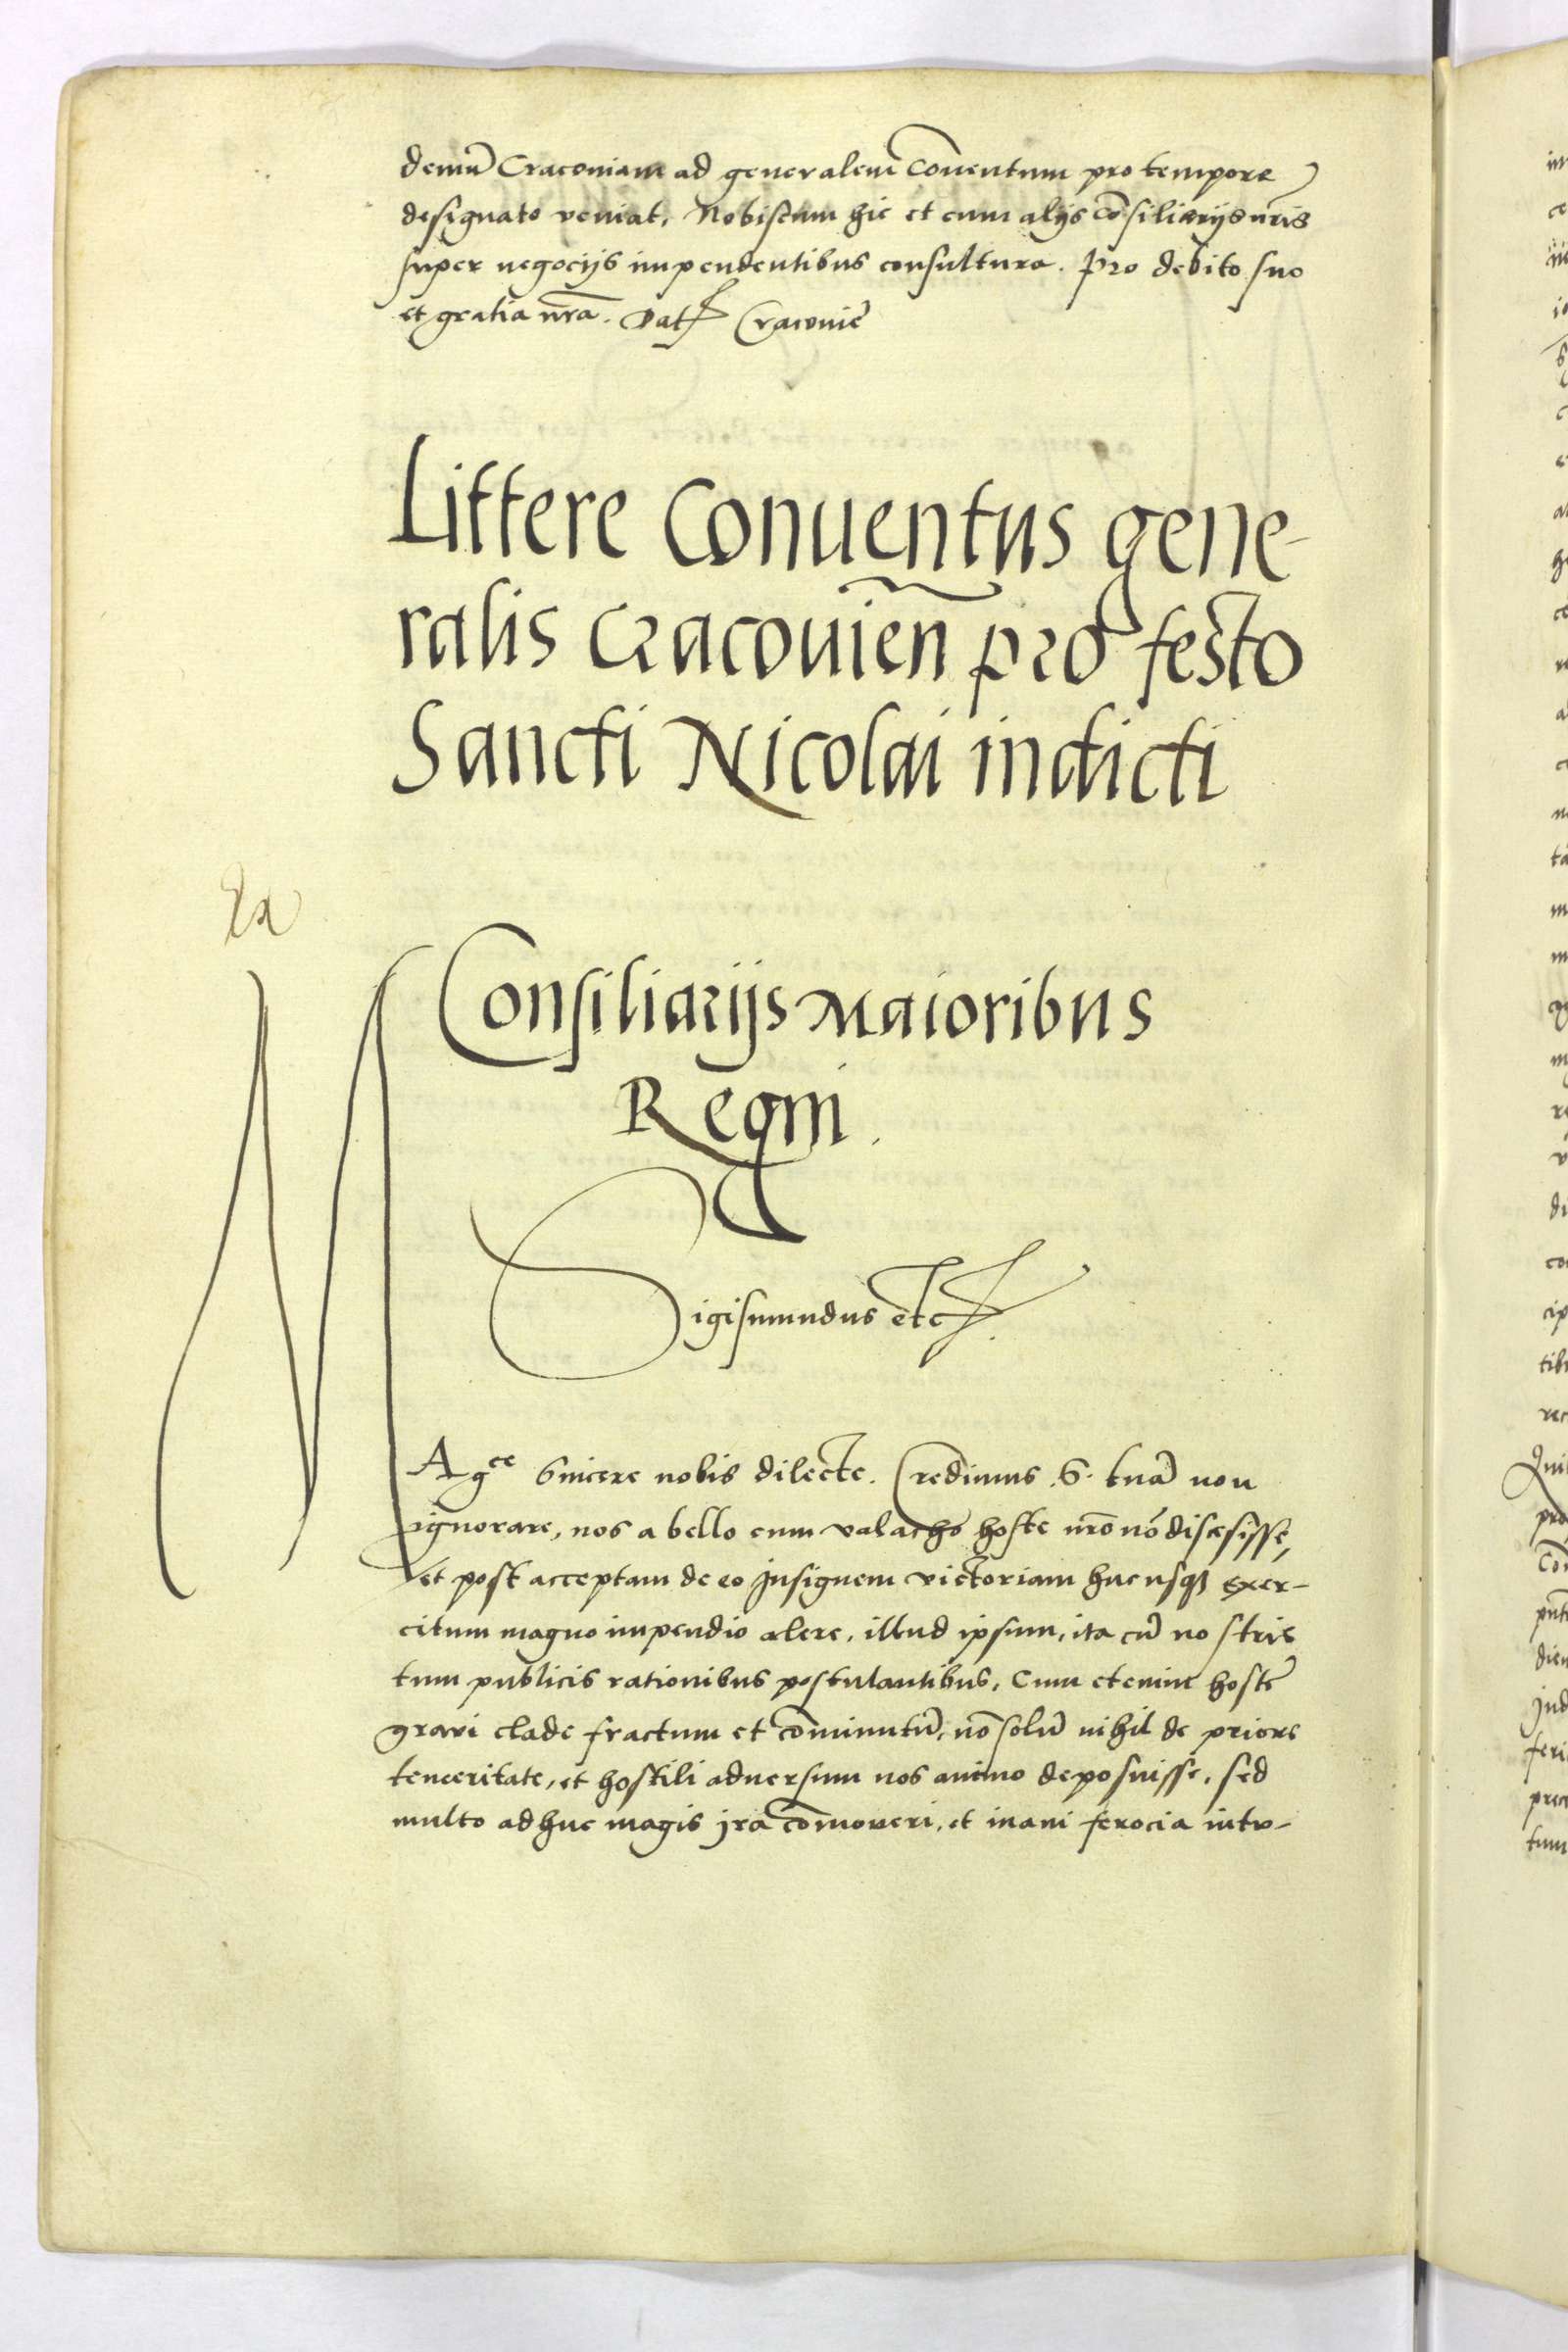 demū Cracoviam ad generalem Cōventum pro tempore
designato veniat, Nobiscum hic et cum alijs cōsiliarijs nr̄is
super negocijs impendentibus consultura. Pro debito suo
et gratia nr̄a. Dat Cracovie
Littere Conventus gene-
ralis Cracovien̄ pro festo
Sancti Nicolai indicti
Consiliarijs Maioribus
Regni.
Sigismundus etc.
M
Agce Sincere nobis dilecte. Credimus .S. tuā non
ignorare, nos a bello cum valacho hoste nr̄o nō discesisse,
et post acceptam de eo Insignem victoriam hucusq3 exer-
citum magno impendio alere, illud ipsum, ita cū nostris
tum publicis rationibus postulantibus, Cum etenim hostē
gravi clade fractum et cōminutū, nō solū nihil de priore
temeritate, et hostili adversum nos animo deposuisse, sed
multo adhuc magis jra cōmoveri, et inani ferocia intu-